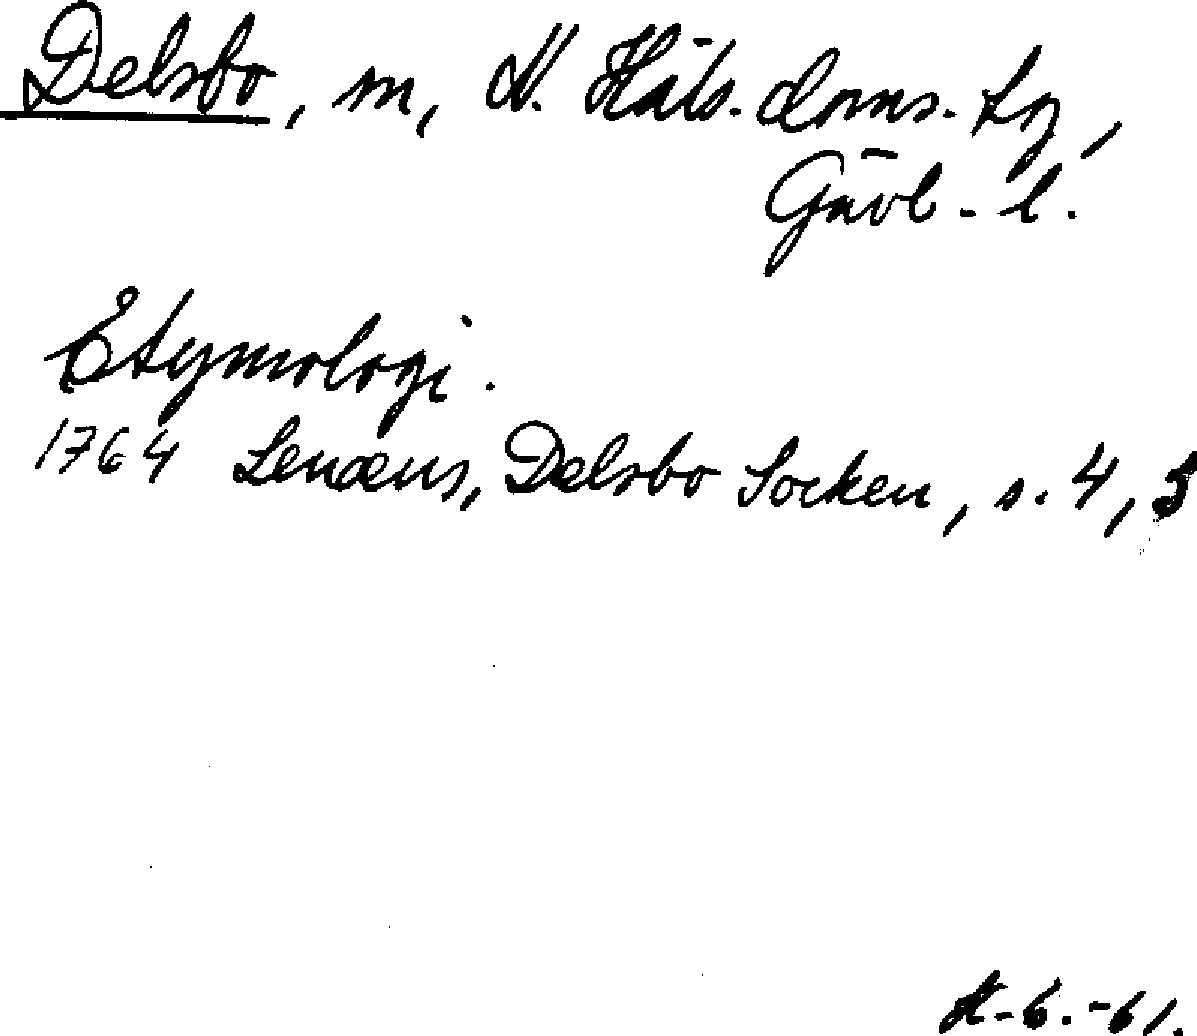 Delsbo, m, N. Häls. doms. tg,
Gävl - l.
Etymologi.
1764 Lenæus, Delsbo Socken, s. 4, 3
-6.-61.